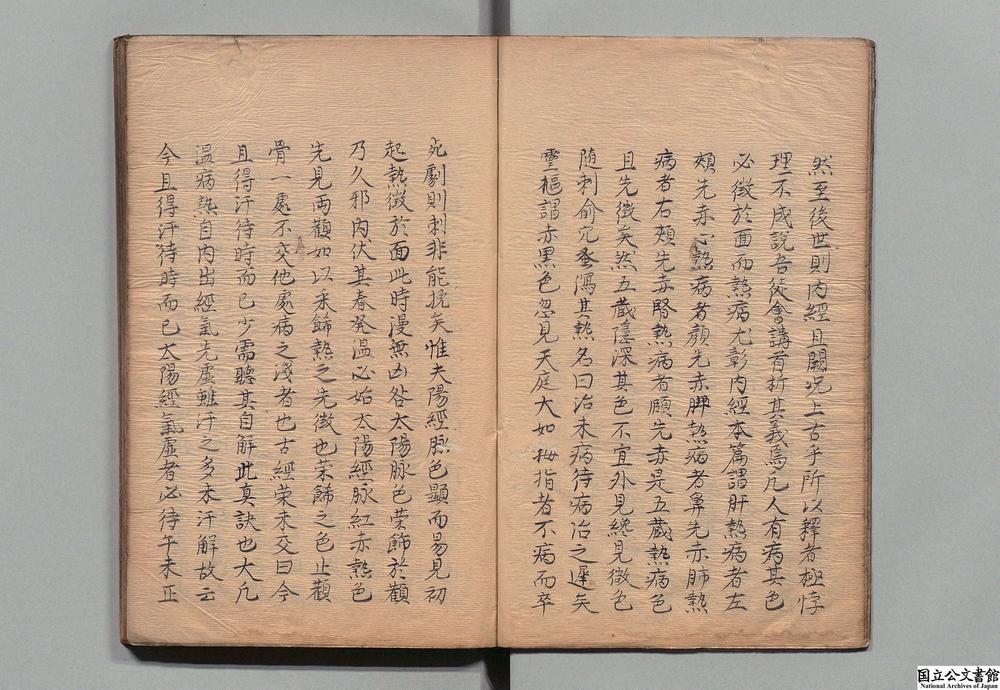 然至後世則内經且闕况上古乎所以釋者極悖
理不成說吾徒會講首析其義焉凡人有病其色
必徴於面而熱病尤彰内經本篇謂肝熱病者左
頰先赤心熱病者顔先赤脾熱病者鼻先赤肺熱
病者右頰先赤腎熱病者頥先赤是五蔵熱病色
且先徴矣然五蔵隂深其色不宜外見纔見徴色
随刺俞穴𡊮瀉其熱名曰治未病待病治之遲矣
霊樞謂赤黒色忽見天庭大如拇指者不病而卒
死劇則刺非能挽矣惟夫陽經脉色顕而易見初
起熱徴於面此時漫無凶咎太陽脉色荣飾於顴
乃久邪内伏其春発温必始太陽經脉紅赤熱色
先見両顴如以釆飾熱之先徴也荣飾之色止顴
骨一處不交他處病之淺者也古經荣未交曰今
且得汗待時而已少需聽其自解此真訣也大凡
温病熱自内出經氣先虚雖汗之多未汗解故云
今且得汗待時而已太陽經氣虚者必待午未正
国立公文書館
National Archives of Japan